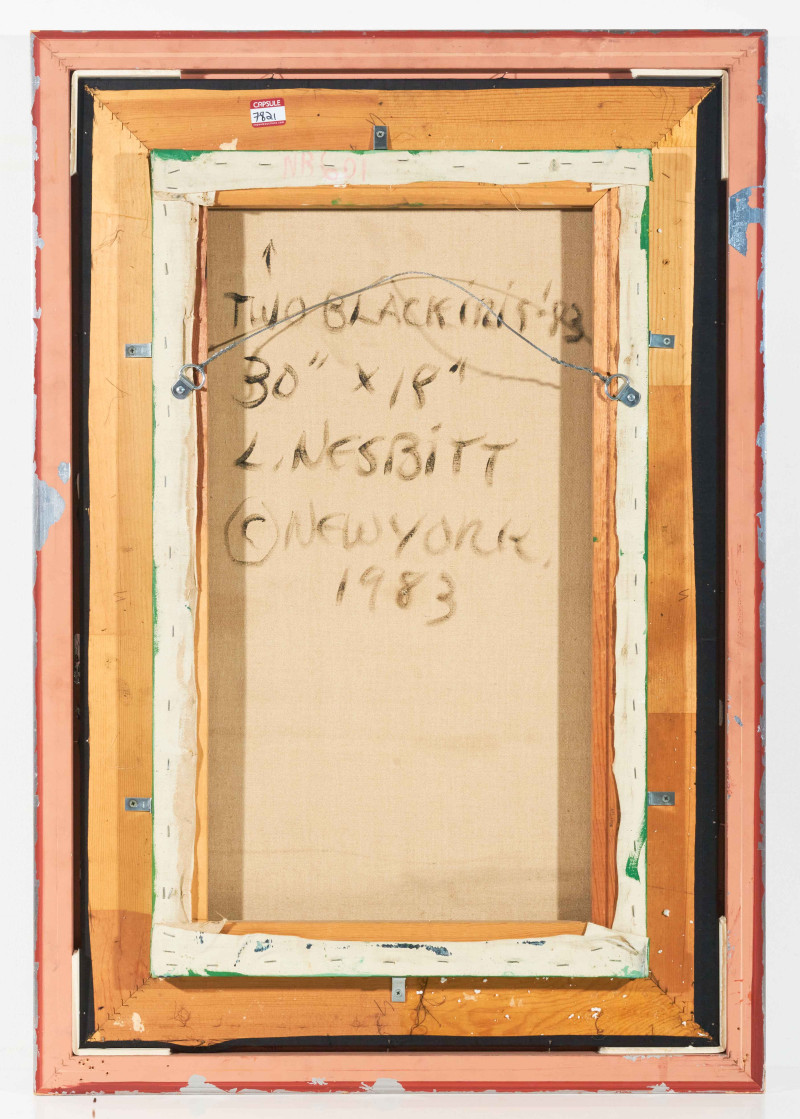 CAPSULE
7821
↑
TWO BLACK IRIS '83
30" x 18"
L. NESBITT
© NEW YORK,
1983